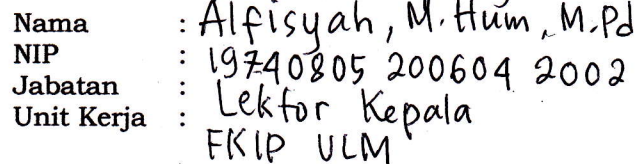 Nama : Alfisyah, M.Hum, M.Pd
NIP : 19740805 200604 2002
Jabatan : Lektor Kepala
Unit Kerja : FKIP ULM